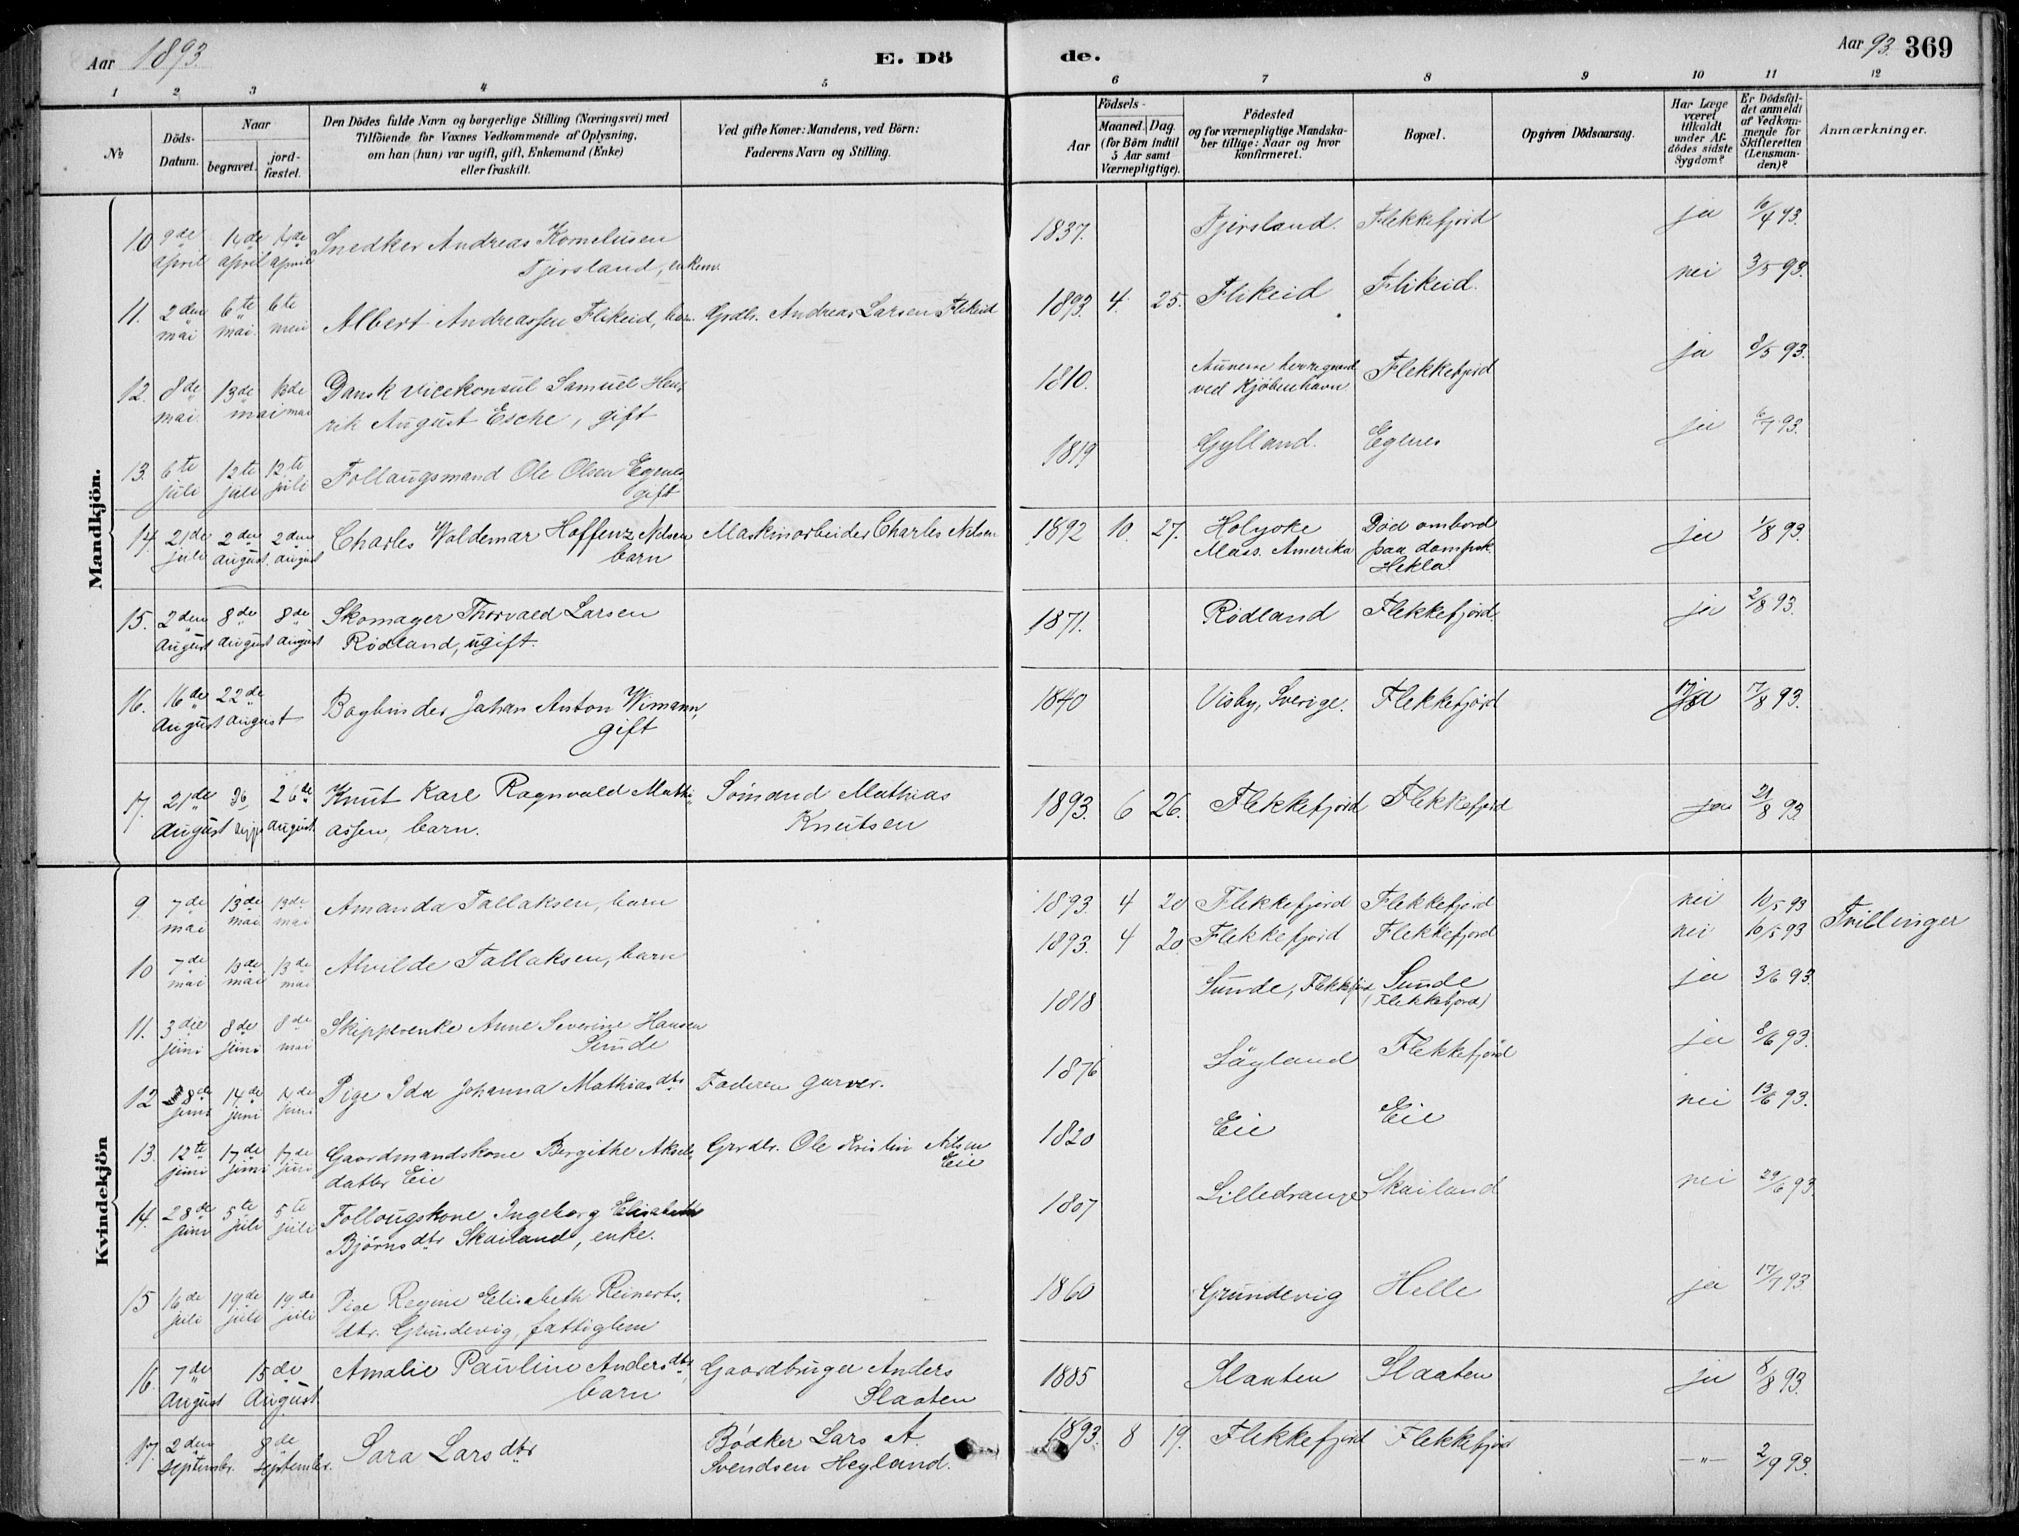 Aar 1893. E. Dö de. Aar 93. 369
1 2 3 4 5 6 7 8 9 10 11 12
№
Döds-Datum.
Naar
begravet. jordfæstet.
Den Dödes fulde Navn og borgerlige Stilling (Næringsvei) med
Tilföiende for Voxnes Vedkommende af Oplysning,
om han (hun) var ugift, gift, Enkemand (Enke)
eller fraskilt.
Ved gifte Koner: Mandens, ved Börn:
Faderens Navn og Stilling.
Födsels-
Aar Maaned. Dag.
(for Börn indtil
5 Aar samt
Værnepligtige).
Födested
og for værnepligtige Mandskaber
tillige: Naar og hvor
konfirmeret.
Bopæl.
Opgiven Dödsaarsag.
Har Læge
været
tilkaldt
under Afdödes
sidste
Sygdom?
Er Dödsfaldet
anmeldt
af Vedkommende
for
Skifteretten
(Lensmanden)?
Anmærkninger.
Mandkjön.
10 9de april 14de april 14de april Snedker Andreas Kornelius​en Tjersland, enkem. 1837. Tjersland. Flekkefjord ja 10/4 93.
11. 2den mai 6te mai. 6te mai Albert Andreassen Flikeid, barn. Grdbr. Andreas Larsen Flikeid 1893. 4. 25. Flikeid Flikeid. nei 3/5 93.
12. 8de mai. 13de mai 13de mai Dansk vicekonsul Samuel Henrik August Esche, gift 1810. herregaard ved Kjöbenhavn Flekkefjord ja 8/5 93.
13. 6te juli 12te juli 12te juli Follaugsmand Ole Olsen Egenes, gift 1819 Gylland. Egenes ja 6/7 93.
14. 21de juli 2den august. 2den august Charles Woldemar Hoffenz Nilsen barn Maskinarbeider Charles Nilsen 1892 10. 27. Holyoke Mass. Amerika Död ombord paa dampsk. Hekla ja 1/8 93.
15. 2den August 8de August 8de August Skomager Thorvald Larsen Rödland, ugift. 1871. Rödland Flekkefjord ja 2/8 93.
16. 16de August 22de August Bogbinder Johan Anton Wimann, gift 1840 Visby, Sverige. Flekkefjord ja 17/8 93.
17. 21de August 26 26de August. Knut Karl Ragnvald Mathiassen, barn. Sömand Mathias Knutsen 1893. 6 26. Flekkefjord Flekkefjord ja 21/8 93
Kvindekjön
9. 7de mai 13de mai 13de mai Amanda Tallaksen, barn 1893. 4 20 Flekkefjord Flekkefjord nei 10/5 93 Tvillinger
10 7de mai 13de mai 13de mai Alvilde Tallaksen, barn 1893. 4 20. Flekkefjord Flekkefjord nei 10/5 93
11. 3die juni 8de juni 8de mai Skipperenke Anne Severine Hansen Sunde 1818 Sunde, Flekkefjord Sunde (Flekkefjord) ja 3/6 93.
12 8de juni 14de juni 14de juni Pige Ida Johanna Mathiasdtr Faderen garver. 1876 Löyland Flekkefjord ja 8/6 93.
13. 12te juni 17de juni 17de juni Gaardmandskone Bergithe Akselsdatter Eie Grdbr. Ole Kristin Nilsen Eie 1820 Eie Eie nei 13/6 93.
14. 28de juni 5te juli 5te juli Follougskone Ingeborg Elisabeth Björnsdtr Skailand, enke. 1807 Lilledrange Skailand nei 29/6 93.
15 16de juli 19de juli 19de juli Pige Regine Elisabeth Reinertsdtr. Grundevig, fattiglem 1860 Grundevig Helle ja 17/7 93.
16. 7de August 15de August Amalie Pauline Andersdtr, barn Gaardbruger Anders Slaaten 1885 Slaaten Slaaten ja 8/8 93.
17. 2den Septembr. 8de September. Sara Larsdtr Bödker Lars A. Svendsen Heyland. 1893. 8 19. Flekkefjord Flekkefjord —"— 2/9 93.